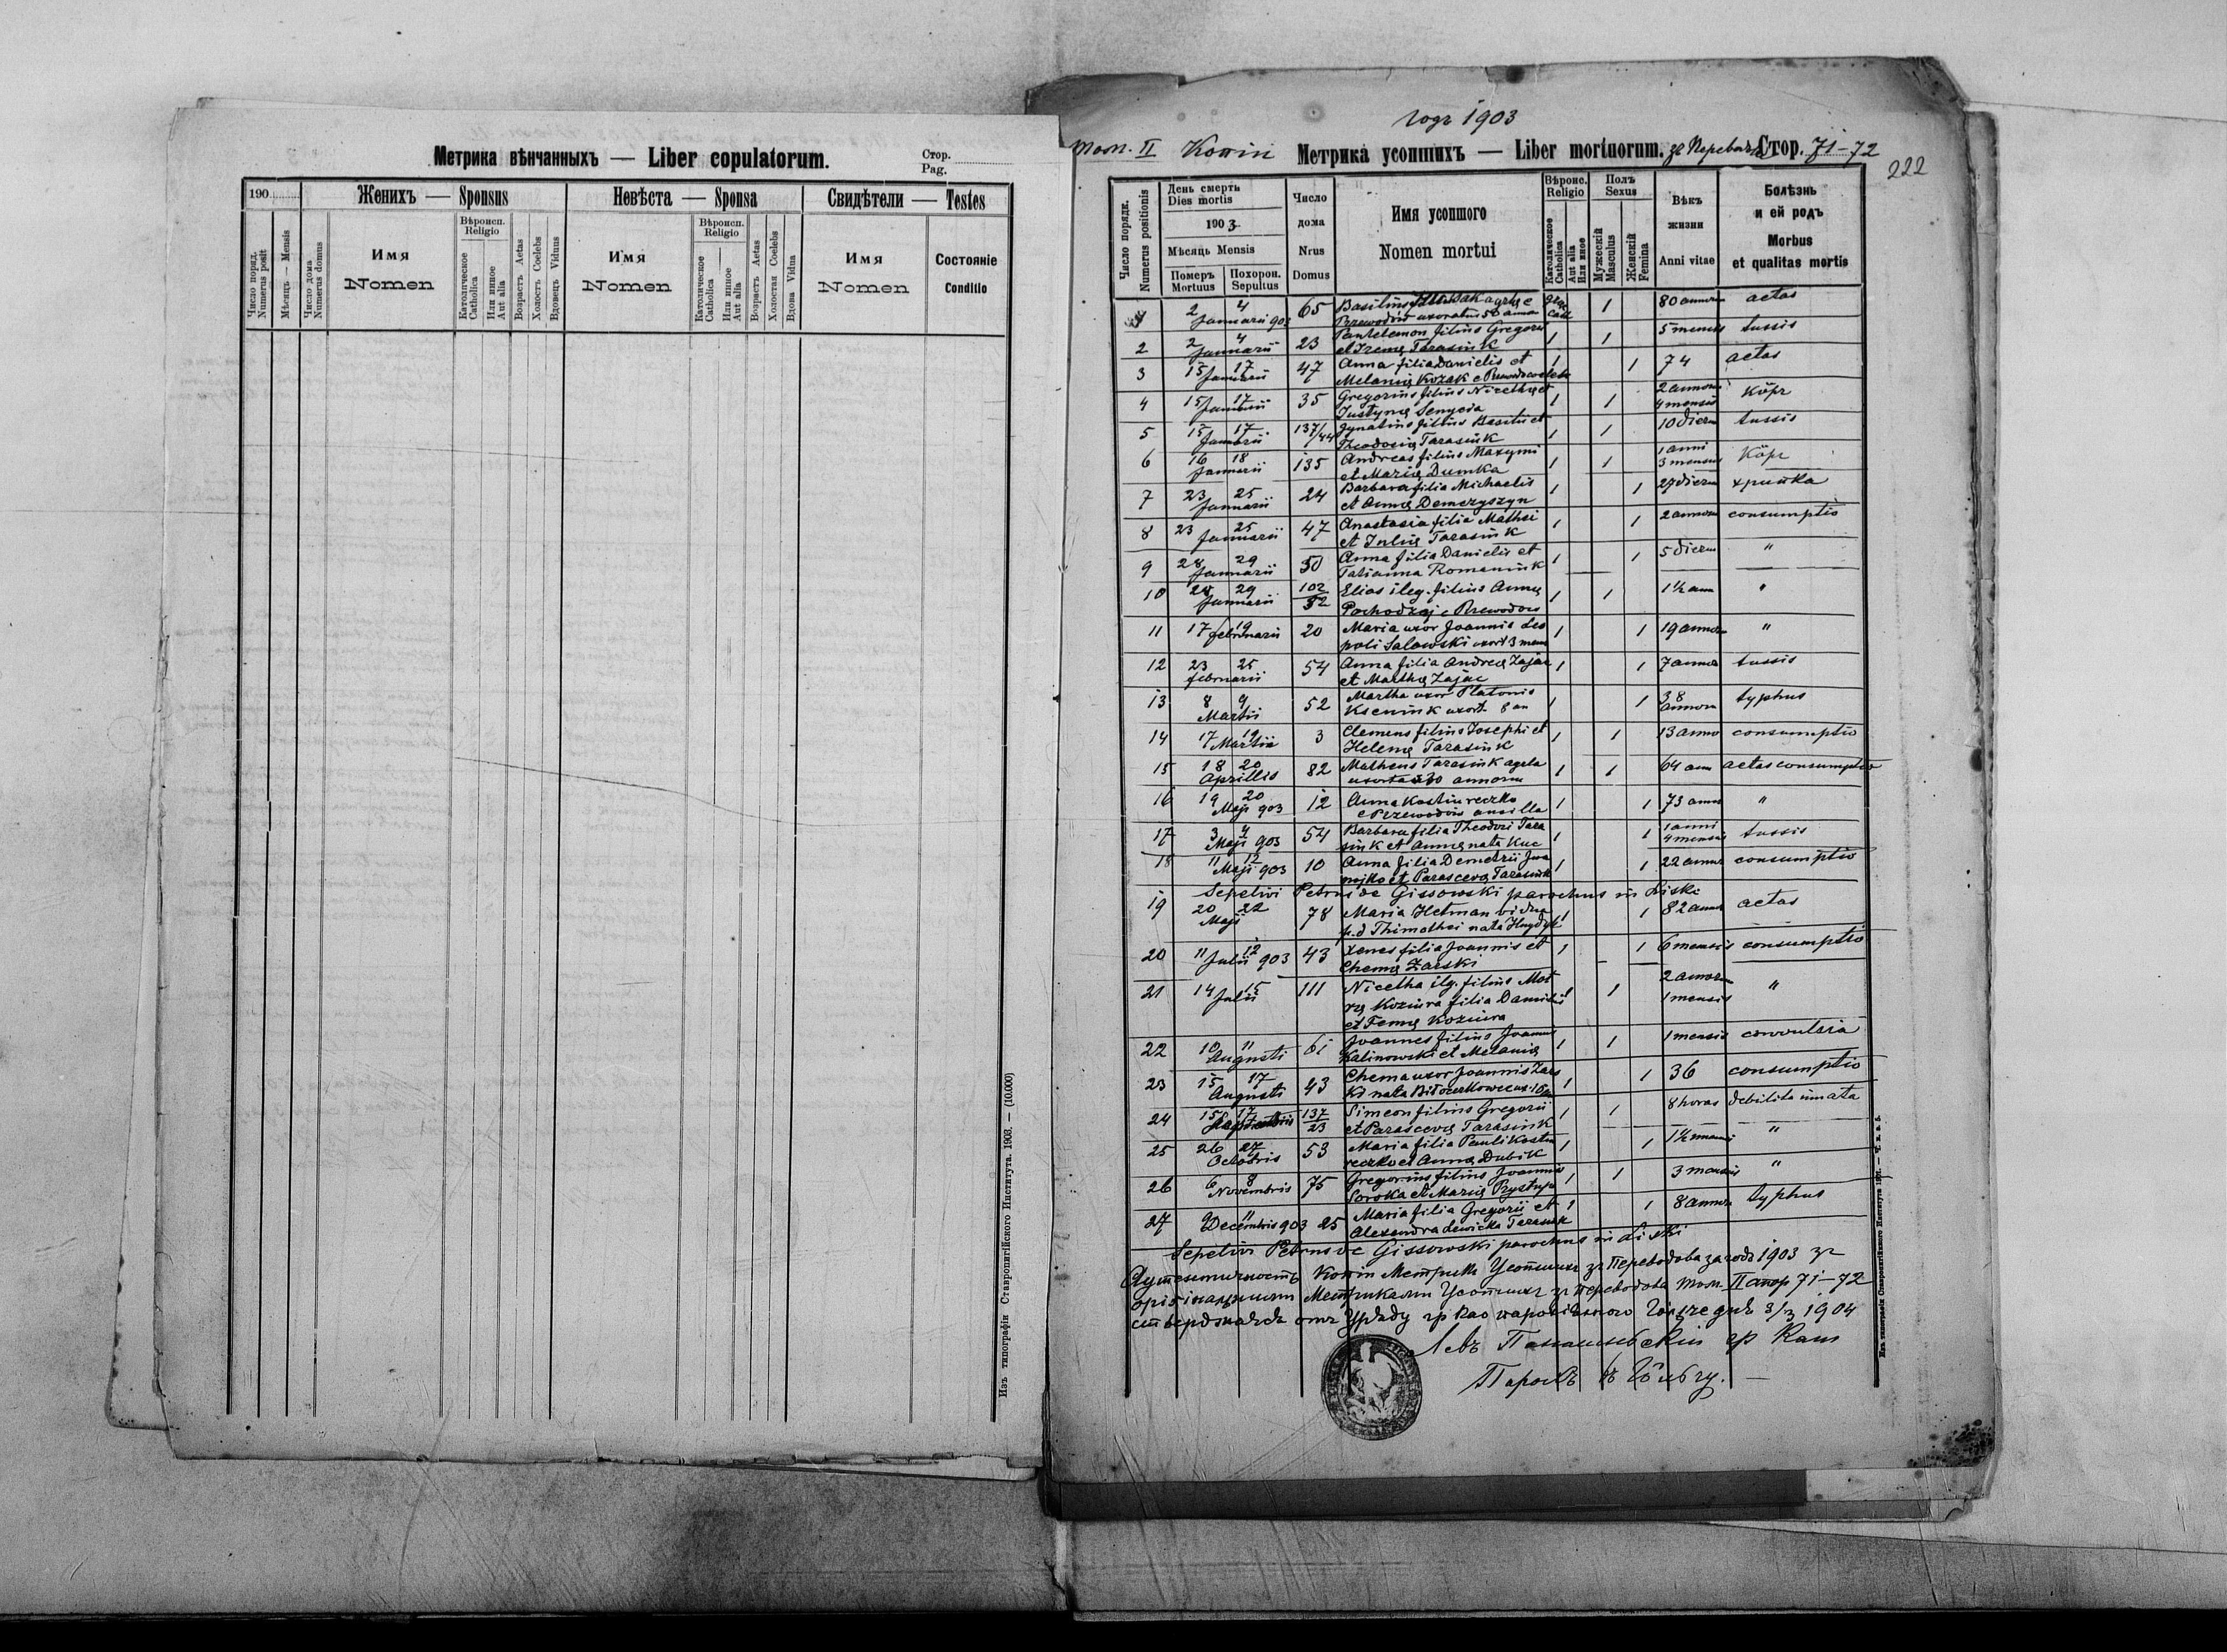 Метрика вѣнчанныхъ — Liber copulatorum.
Стор.
Pag.
190
Женихъ — Sponsus
Невѣста — Sponsa
Свидѣтели — Testes
Число поряд.
Numerus posit
Мѣсяцъ — Mensis
Число дома
Numerus domus
Имя
Nomen
Вѣроисп.
Religio
Католическое
Catholica
Или инное
Aut alia
Возрастъ Aetas
Холостъ Coelebs
Вдовецъ Viduus
Имя
Nomen
Вѣроисп.
Religio
Католическое
Catholica
Или инное
Aut alia
Возрастъ Aetas
Холостая Coelebs
Вдова Vidua
Имя
Nomen
Состояніе
Conditio
Изъ типографіи Ставропигійского Института. 1903. — (10.000)
годъ 1903
том. II Копіи Метрика усопшихъ — Liber mortuorum. Стор. 71-72
222
Число порядк.
Numerus positionis
День смерть
Dies mortis
1903
Мѣсяць Mensis
Померъ
Mortuus
Похорон.
Sepultus
Число
дома
Nrus
Domus
Имя усопшого
Nomen mortui
Вѣроис.
Religio
Католическое
Catholica
Aut alia
Или инное
Полъ
Sexus
Мужескій
Masculus
Женскій
Femina
Вѣкъ
жизни
Anni vitae
Болѣзнь
и ей родъ
Morbus
et qualitas mortis
2 4 Januarii 903 65 Basilius agricola e 1 80 annorum aetas
Przewodów uxoratus 50 annor
2 2 4 Januarii 23 Panteleemon filius Gregorii 1 1 5 mensis tussis
et Irenę Tarasiuk
3 15 17 Januarii 47 Anna filia Danielis et 1 1 74 aetas
Melanię Kozak e
4 15 17 Januarii 35 Gregorius filius Nicethę et 1 1 2 annorum 4 mensis Kôpr
Justynę Senycia
5 15 17 Januarii 137/44 Ignatius filius Basilii et 1 1 10 dierum tussis
Theodosię Tarasiuk
6 16 18 Januarii 135 Andreas filius Maxymi 1 1 1 anni 3 mensis Kôpr
et Marię Dumka
7 23 25 Januarii 24 Barbara filia Michaelis 1 1 27 dierum хрипка
et Annę Demczyszyn
8 23 25 Januarii 47 Anastasia filia Mathei 1 1 2 annorum consumptio
et Julię Tarasiuk
9 28 29 Januarii 50 Anna filia Danielis et 1 1 5 dierum "
Tatianna Romaniuk
10 28 29 Januarii 102/52 Elias ileg. filius Annę 1 1 1½ ann "
Pochodzaj e Przewodow
11 17 19 februarii 20 Maria uxor Joannis Leo 1 1 19 annorum "
poli Salowski uxort 3 mens
12 23 25 februarii 54 Anna filia Andreę Zając 1 1 7 annor tussis
et Marthę Zając
13 8 9 Martii 52 Martha uxor Platonis 1 1 38 annorum typhus
Kseniuk uxort. 8 an
14 17 19 Martii 3 Clemens filius Josephi et 1 1 13 anno consumptio
Helenę Tarasiuk
15 18 20 Aprillis 82 Matheus Tarasiuk agrla 1 1 64 ann aetas consumptio
30 annorum
16 19 20 Maji 903 12 Anna Kostiureczko 1 1 73 annor "
e Przewodów ancilla
17 3 4 Maji 903 54 Barbara filia Theodori Tara 1 1 1 anni 4 mensis tussis
siuk et Annę nata Kuc
18 11 12 Maji 903 10 Anna filia Demetrii 1 1 22 annor consumptio
et Parascevę Tarasiuk
Sepelivi Petrus de Gissowski parochus in Liski
19 20 22 Maji 78 Maria Hetman vidua 1 1 82 annor aetas
p.d Thimothei nata
20 11 12 Julii 903 43 Xenes filia Joannis et 1 1 6 mensis consumptio
Chemę Żarski
21 14 15 Julii 111 Nicetha ilg. filius Mot 1 1 2 annorum 1 mensis "
rę Koziura filia Danielis
et Fennę Koziura
22 10 11 Augusti 61 Joannes filius Joannis 1 1 1 mensis convulsia
Kalinowski et Melanię
23 15 17 Augusti 43 Chema uxor Joannis Żars 1 1 36 consumptio
ki nata
24 15 17 137/23 Simeon filius Gregorii 1 1 8 horas debilita innata
et Parascevę Tarasiuk
25 26 27 Octobris 53 Maria filia Pauli Kostiu 1 1 "
reczko et Annę Dubik
26 6 8 Novembris 75 Gregorius filius Joannis 1 1 3 mensis "
Soroka et Marię Przystupa
27 9 11 Decembris 903 25 Maria filia Gregorii et 1 1 8 annor typhus
Alexandra Lewicka Tarasiuk
Sepelivi Petrus de Gissowski parochus in Liski
Аутентичность копіи Метрики Усопшихъ зъ Переводова за годъ 1903 зъ
оригінальными Метриками Усопшихъ зъ Переводова том. II стор 71-72
стверджаесь отъ Уряду гр кат парохіяльного дня 3/3 1904
Левъ гр Кат
Парохъ
Изъ типографіи Ставропигійского Института